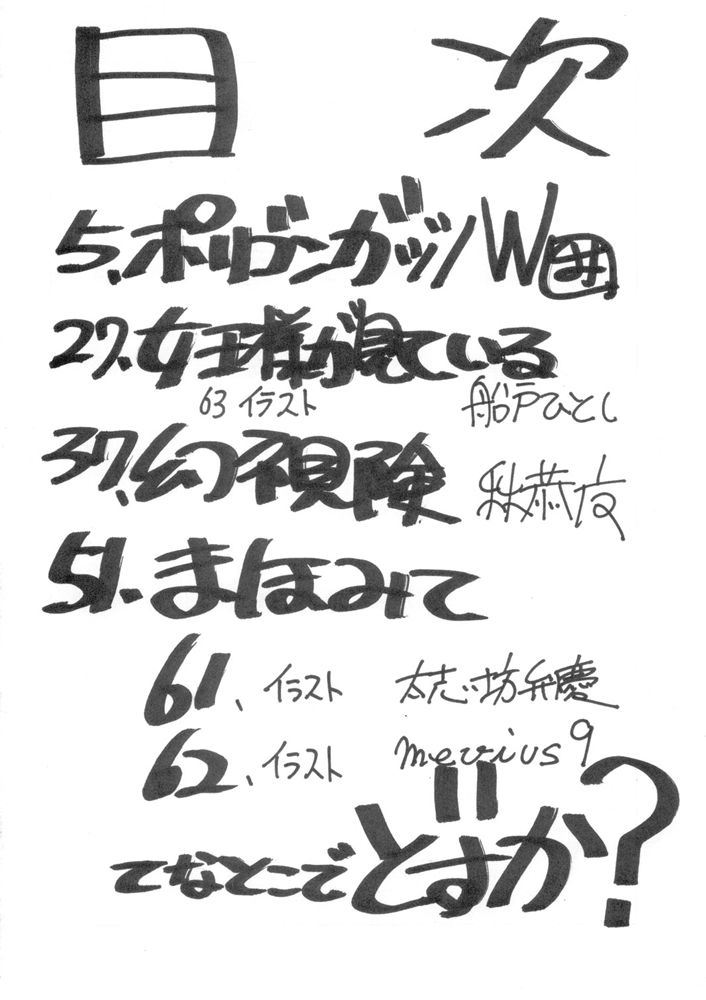 目 次
5.ポリゴンガッツ/W
27.女王様が見ている
63 イラスト 船戸ひとし
37.幻視険 秋恭
51.まほみて
61、イラスト 太志坊弁慶
62、イラスト mevius9
てなとこでどすか?